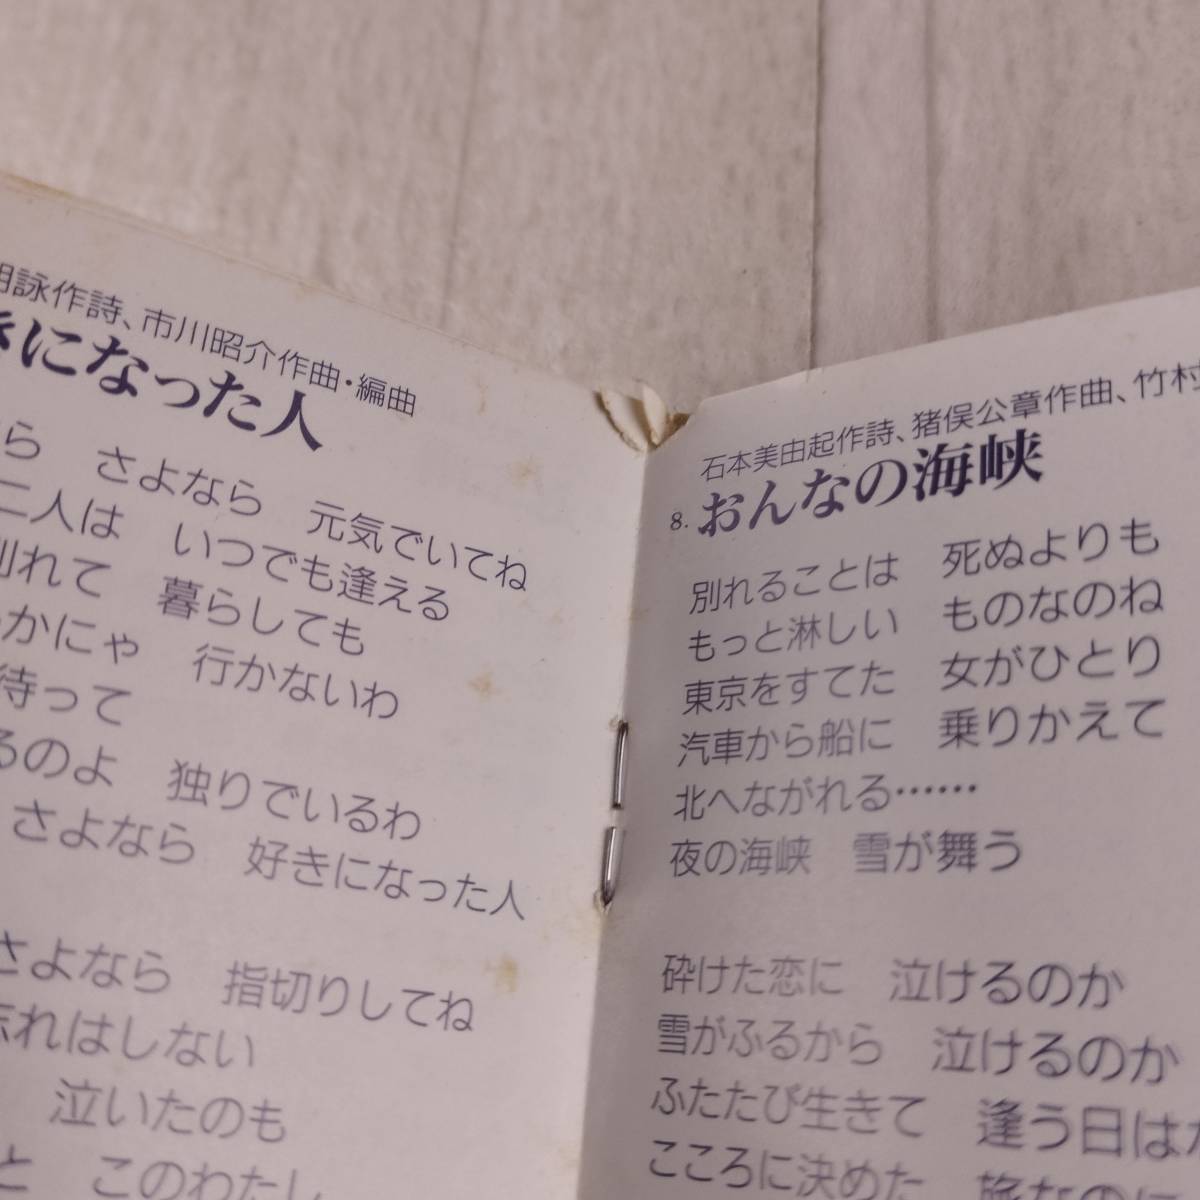 詠作詩、市川昭介作曲・編曲
きになった人
ら さよなら 元気でいてね
二人は いつでも逢える
別れて 暮らしても
かにゃ 行かないわ
待って
るのよ 独りでいるわ
さよなら 好きになった人
さよなら 指切りしてね
忘れはしない
泣いたのも
と このわたし
石本美由起作詩、猪俣公章作曲、竹村
8. おんなの海峡
別れることは 死ぬよりも
もっと淋しい ものなのね
東京をすてた 女がひとり
汽車から船に 乗りかえて
北へながれる……
夜の海峡 雪が舞う
砕けた恋に 泣けるのか
雪がふるから 泣けるのか
ふたたび生きて 逢う日は
こころに決めた 旅なのに